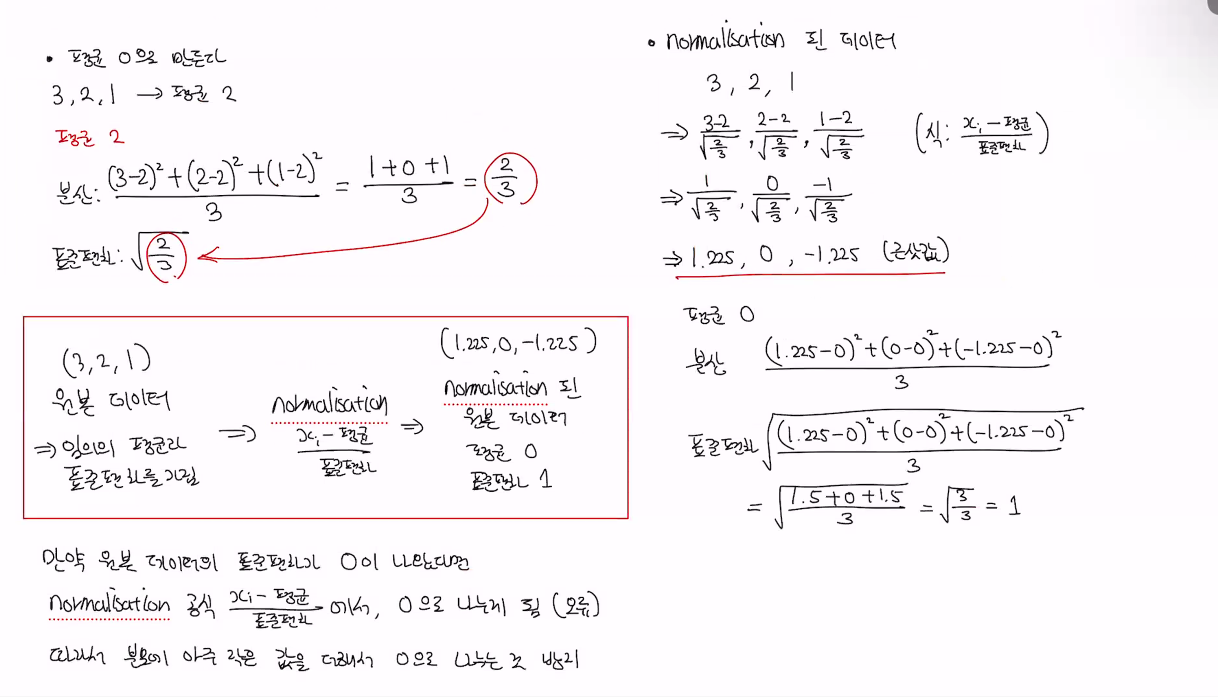 • 평균 0으로 만든다
3, 2, 1 → 평균 2
평균 2
분산: ((3-2)²+(2-2)²+(1-2)²)/3 = (1+0+1)/3 = 2/3
표준편차: √(2/3)
(3, 2, 1)
원본 데이터
⇒ 임의의 평균과
표준편차를 가짐
⇒
normalisation
(xᵢ - 평균)/표준편차
⇒
(1.225, 0, -1.225)
normalisation 된
원본 데이터
평균 0
표준편차 1
만약 원본 데이터의 표준편차가 0이 나왔다면
normalisation 공식 (xᵢ - 평균)/표준편차 에서, 0으로 나누게 됨 (오류)
따라서 분모에 아주 작은 값을 더해서 0으로 나누는 것 방지
• normalisation 된 데이터
3, 2, 1
⇒ (3-2)/√(2/3), (2-2)/√(2/3), (1-2)/√(2/3) (식: (xᵢ - 평균)/표준편차)
⇒ 1/√(2/3), 0/√(2/3), -1/√(2/3)
⇒ 1.225, 0, -1.225 (근삿값)
평균 0
분산 ((1.225-0)²+(0-0)²+(-1.225-0)²)/3
표준편차 √(((1.225-0)²+(0-0)²+(-1.225-0)²)/3)
= √((1.5+0+1.5)/3) = √(3/3) = 1